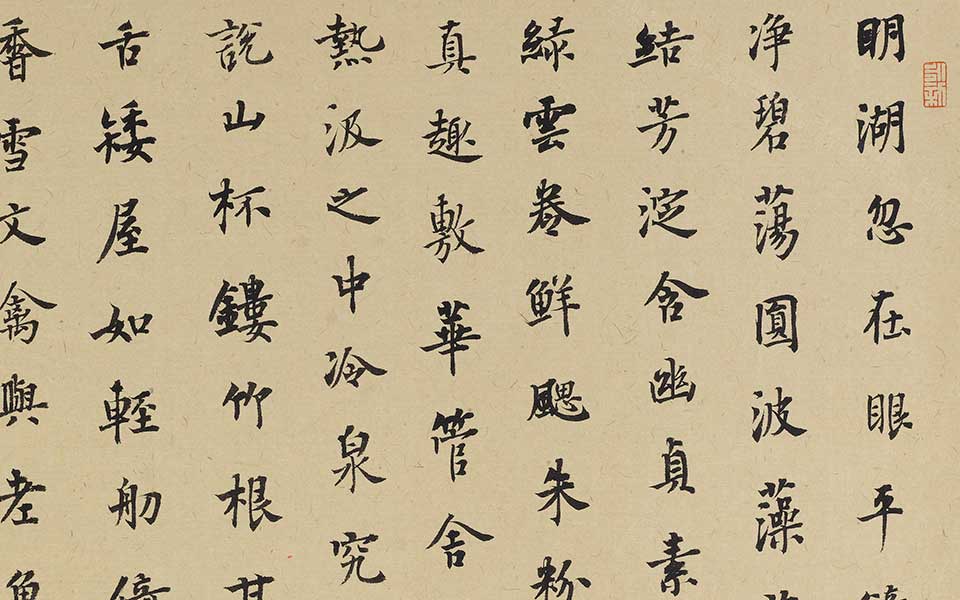 明湖忽在眼平
净碧蕩圓波藻
結芳淀含幽貞素
綠雲卷鮮颸朱粉
真趣敷華管舍
熱汲之中冷泉究
說山杯鏤竹根其
舌矮屋如輕舠
香雪文禽與老魚